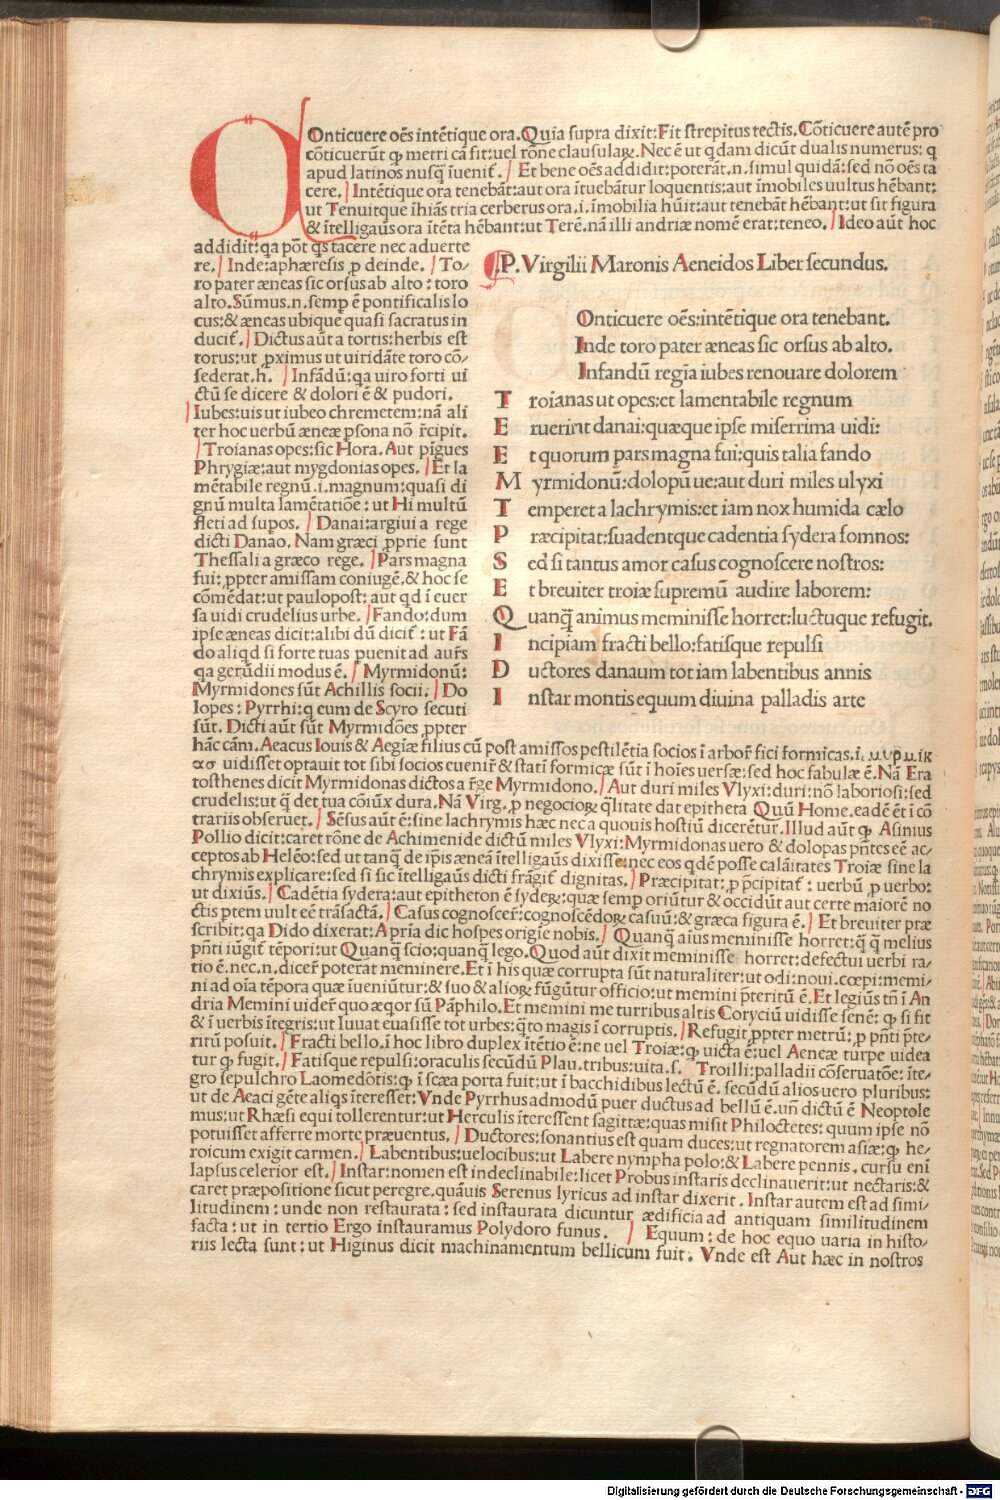 Onticuere oēs intētique ora. Quia supra dixit: Fit strepitus tectis. Cōticuere autē pro
cōticuerūt ꝙ metri cā fit: uel rōne clausulaꝝ. Nec ē ut qdam dicūt dualis numerus: q
apud latinos nusq̄ īuenit̄. / Et bene oēs addidit: poterāt .n. simul quidā: sed nō oēs ta
cere. / Intētique ora tenebāt: aut ora ītuebātur loquentis: aut īmobiles uultus hēbant:
ut Tenuitque īhiās tria cerberus ora .i. īmobilia hūit: aut tenebāt hēbant: ut sit figura
& ītelligaūs ora ītēta hēbant: ut Terē. nā illi andriæ nomē erat: teneo. / Ideo aūt hoc
addidit: qa pōt qs tacere nec aduerte
re. / Inde: aphæresis ꝓ deinde. / To-
ro pater æneas sic orsus ab alto: toro
alto. Sūmus .n. semp ē pontificalis lo
cus: & æneas ubique quasi sacratus in
ducit̄. / Dictus aūt a tortis: herbis est
torus: ut ꝓximus ut uiridāte toro cō-
sederat .h. / Infādū: qa uiro forti ui
ctū se dicere & dolori ē & pudori.
/ Iubes: uis ut iubeo chremetem: nā ali
ter hoc uerbū æneæ psona nō r̄cipit.
/ Troianas opes: sic Hora. Aut pīgues
Phrygiæ: aut mygdonias opes. / Et la
mētabile regnū .i. magnum: quasi di
gnū multa lamētatiōe: ut Hi multū
fleti ad supos. / Danai: argiui a rege
dicti Danāo. Nam græci ꝓprie sunt
Thessali a græco rege. / Pars magna
fui: ꝓpter amissam coniugē. & hoc se
cōmedat: ut paulopost: aut qd ī euer
sa uidi crudelius urbe. / Fando: dum
ipse æneas dicit: alibi dū dicit̄: ut Fā
do aliqd si forte tuas puenit ad aur̄s
qa gerūdii modus ē. / Myrmidonū:
Myrmidones sūt Achillis socii. / Do
lopes: Pyrrhi: q eum de Scyro secuti
sūt. Dicti aūt sūt Myrmidōes ꝓpter
¶.P. Virgilii Maronis Aeneidos Liber secundus.
Onticuere oēs: intētique ora tenebant.
Inde toro pater æneas sic orsus ab alto.
Infandū regīa iubes renouare dolorem
T roianas ut opes: et lamentabile regnum
E ruerint danai: quæque ipse miserrima uidi:
E t quorum pars magna fui: quis talia fando
M yrmidonū: dolopū ue: aut duri miles ulyxi
T emperet a lachrymis: et iam nox humida cælo
P ræcipitat: suadentque cadentia sydera somnos:
S ed si tantus amor casus cognoscere nostros:
E t breuiter troiæ supremū audire laborem:
Q uanq̄ animus meminisse horret: luctuque refugit.
I ncipiam fracti bello: fatisque repulsi
D uctores danaum tot iam labentibus annis
I nstar montis equum diuina palladis arte
hāc cām. Aeacus Iouis & Aegiæ filius cū post amissos pestilētia socios ī arbor̄ fici formicas .i. μυρμικ
ασ uidisset optauit tot sibi socios euenir̄ & statī formicæ sūt ī hoīes uersæ: sed hoc fabulæ ē. Nā Era
tosthenes dicit Myrmidonas dictos a r̄ge Myrmidono. / Aut duri miles Vlyxi: duri: nō laboriosi: sed
crudelis: ut q̄ det tua cōiūx dura. Nā Virg. ꝓ negocioꝝ q̄litate dat epitheta Quū Home. eadē ēt ī cō
trariis obseruet. / Sēsus aūt ē: sine lachrymis hæc nec a quouis hostiū dicerētur. Illud aūt ꝙ Asinius
Pollio dicit: caret rōne de Achimenide dictū miles Vlyxi: Myrmidonas uero & dolopas pn̄tes eē ac-
ceptos ab Helēo: sed ut tanq̄ de ipīs æneā ītelligaūs dixisse: nec eos qdē posse calāitates Troiæ sine la
chrymis explicare: sed si sic ītelligaūs dicti frāgit̄ dignitas. / Præcipitat: ꝓ p̄cipitat̄: uerbū ꝓ uerbo:
ut dixiūs. / Cadētia sydera: aut epitheton ē sydeꝝ: quæ semp oriūtur & occidūt aut certe maiorē no
ctis ptem uult eē trāsactā. / Casus cognoscer̄: cognoscēdoꝝ casuū: & græca figura ē. / Et breuiter præ
scribit: qa Dido dixerat: A prīa dic hospes origīe nobis. / Quanq̄ aīus meminisse horret: q̄ q̄ melius
pn̄ti iūgit̄ tēpori: ut Quanq̄ scio: quanq̄ lego. Quod aūt dixit meminisse horret: defectui uerbi ra-
tio ē. nec .n. dicer̄ poterat meminere. Et ī his quæ corrupta sūt naturaliter: ut odi: noui. cœpi: memi-
ni ad oīa tēpora quæ īueniūtur: & suo & alioꝝ fūgūtur officio: ut memini p̄teritū ē. Et legiūs tn̄ ī An
dria Memini uider̄ quo æqor sū Pāphilo. Et memini me turribus altis Coryciū uidisse senē: ꝙ si fit
& ī uerbis ītegris: ut Iuuat euasisse tot urbes: q̄to magis ī corruptis. / Refugit ꝓpter metrū: ꝓ pn̄ti p̄te-
ritū posuit. / Fracti bello. ī hoc libro duplex ītētio ē: ne uel Troiæ: ꝙ uicta ē: uel Aeneæ turpe uidea
tur ꝙ fugit. / Fatisque repulsi: oraculis secūdū Plau. tribus: uita .s. Troilli: palladii cōseruatōe: īte-
gro sepulchro Laomedōtis: ꝙ ī scæa porta fuit: ut ī bacchidibus lectū ē. secūdū alios uero pluribus:
ut de Aeaci gēte aliqs īteresset: Vnde Pyrrhus admodū puer ductus ad bellū ē. un̄ dictū ē Neoptole
mus: ut Rhæsi equi tollerentur: ut Herculis īteressent sagittæ: quas misit Philoctetes: quum ipse nō
potuisset afferre morte præuentus. / Ductores: sonantius est quam duces: ut regnatorem asiæ: ꝙ he-
roicum exigit carmen. / Labentibus: uelocibus: ut Labere nympha polo: & Labere pennis. cursu enī
lapsus celerior est. / Instar: nomen est indeclinabile: licet Probus instaris declinauerit: ut nectaris: &
caret præpositione sicut peregre. quāuis Serenus lyricus ad instar dixerit. Instar autem est ad simi-
litudinem: unde non restaurata: sed instaurata dicuntur ædificia ad antiquam similitudinem
facta: ut in tertio Ergo instauramus Polydoro funus. / Equum: de hoc equo uaria in histo-
riis lecta sunt: ut Higinus dicit machinamentum bellicum fuit. Vnde est Aut hæc in nostros
Digitalisierung gefördert durch die Deutsche Forschungsgemeinschaft - DFG